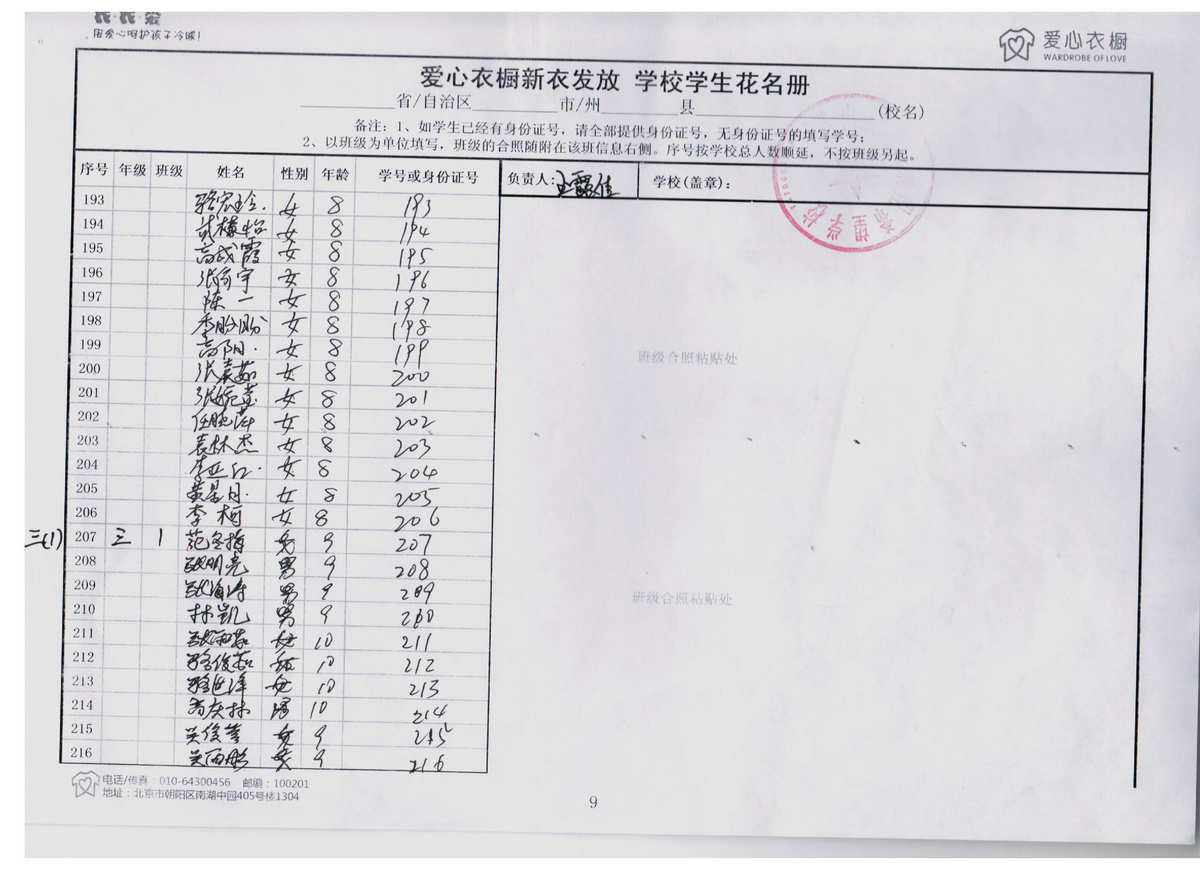 衣·衣·爱
用爱心呵护孩子冷暖!
爱心衣橱
WARDROBE OF LOVE
爱心衣橱新衣发放 学校学生花名册
省/自治区 市/州 县 (校名)
备注:1、如学生已经有身份证号,请全部提供身份证号,无身份证号的填写学号;
2、以班级为单位填写,班级的合照随附在该班信息右侧。序号按学校总人数顺延,不按班级另起。
序号 年级 班级 姓名 性别 年龄 学号或身份证号 负责人: 学校(盖章):
希望学校
193 女 8 193
194 女 8 194
195 高成霞 女 8 195
196 女 8 196
197 陈一 女 8 197
198 李盼盼 女 8 198
199 高阳 女 8 199
班级合照粘贴处
200 张嘉茹 女 8 200
201 女 8 201
202 任晓萍 女 8 202
203 袁林杰 女 8 203
204 李亚红 女 8 204
205 女 8 205
206 李柯 女 8 206
三(1) 207 三 1 范冬梅 9 207
208 男 9 208
209 男 9 209
班级合照粘贴处
210 林凯 男 9 210
211 女 10 211
212 10 212
213 女 10 213
214 10 214
215 女 9 215
216 女 9 216
电话/传真:010-64300456 邮编:100201
地址:北京市朝阳区南湖中园405号楼1304
9